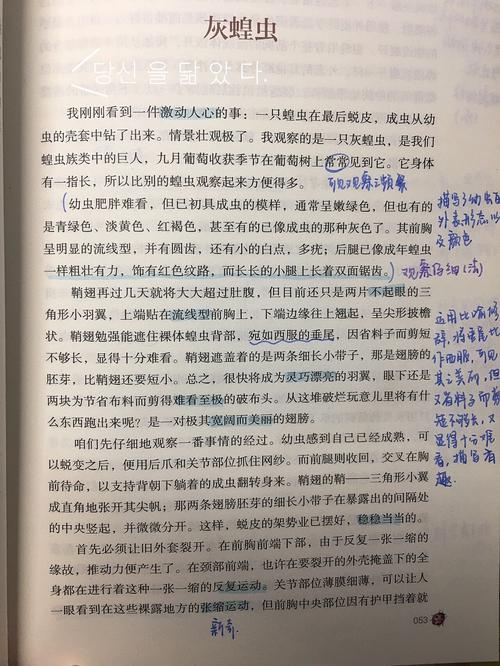 灰蝗虫
당신을 닮았다.
我刚刚看到一件激动人心的事：一只蝗虫在最后蜕皮，成虫从幼
虫的壳套中钻了出来。情景壮观极了。我观察的是一只灰蝗虫，是我们
蝗虫族类中的巨人，九月葡萄收获季节在葡萄树上常常见到它。它身体
有一指长，所以比别的蝗虫观察起来方便得多。
可见观察之频繁
幼虫肥胖难看，但已初具成虫的模样，通常呈嫩绿色，但也有的
是青绿色、淡黄色、红褐色，甚至有的已像成虫的那种灰色了。其前胸
呈明显的流线型，并有圆齿，还有小的白点，多疣；后腿已像成年蝗虫
一样粗壮有力，饰有红色纹路，而长长的小腿上长着双面锯齿。
观察仔细（法）
描写了幼虫的
外表，形态，以
及颜色
鞘翅再过几天就将大大超过肚腹，但目前还只是两片不起眼的三
角形小羽翼，上端贴在流线型前胸上，下端边缘往上翘起，呈尖形披檐
状。鞘翅勉强能遮住裸体蝗虫背部，宛如西服的垂尾，因省料子而剪短
不够长，显得十分难看。鞘翅遮盖着的是两条细长小带子，那是翅膀的
胚芽，比鞘翅还要短小。总之，很快将成为灵巧漂亮的羽翼，眼下还是
两块为节省布料而剪得难看至极的破布头。从这堆破烂玩意儿里将有什
么东西跑出来呢？是一对极其宽阔而美丽的翅膀。
运用比喻修
辞，将垂尾比
作西服，可见
其之美丽，但
又省料子而剪
短不够长，又
显得十分难
看，描写有
趣
咱们先仔细地观察一番事情的经过。幼虫感到自己已经成熟，可
以蜕变之后，便用后爪和关节部位抓住网纱。而前腿则收回，交叉在胸
前待命，以支持背朝下躺着的成虫翻转身来。鞘翅的鞘——三角形小翼
成直角地张开其尖帆；那两条翅膀胚芽的细长小带子在暴露出的间隔处
的中央竖起，并微微分开。这样，蜕皮的架势业已摆好，稳稳当当的。
首先必须让旧外套裂开。在前胸前端下部，由于反复一张一缩的
缘故，推动力便产生了。在颈部前端，也许在要裂开的外壳掩盖下的全
身都在进行着这种一张一缩的反复运动。关节部位薄膜细薄，可以让人
一眼看到在这些裸露地方的张缩运动，但前胸中央部位因有护甲挡着就
新奇
053